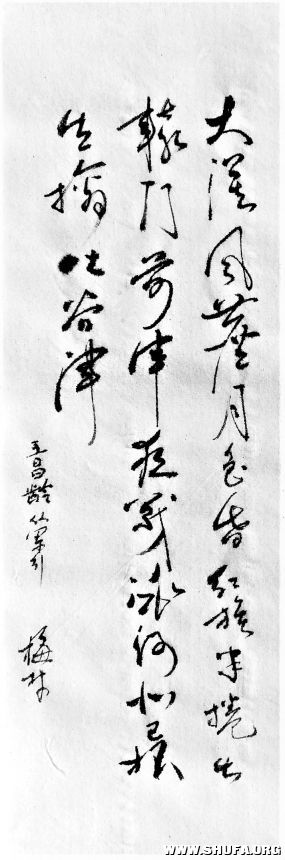 大漠風塵月色昏紅旗半捲出
轅门前軍夜戰洮河北已报
生擒吐谷渾
王昌齡从軍行
梅村
WWW.SHUFA.ORG